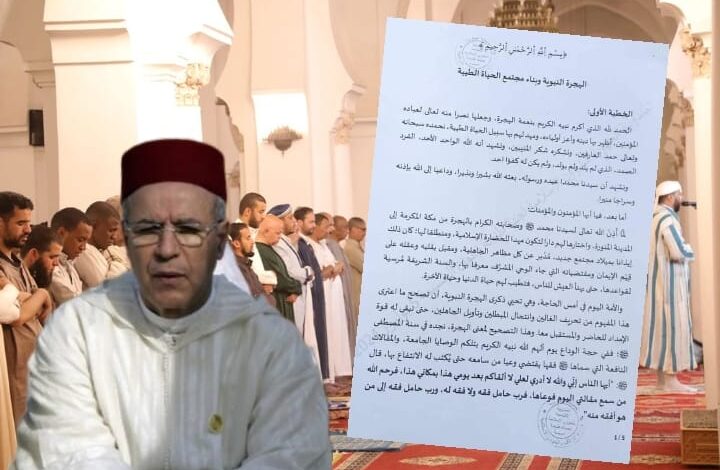 ﴿بِسْمِ اللَّهِ الرَّحْمَٰنِ الرَّحِيمِ﴾
الهجرة النبوية وبناء مجتمع الحياة الطيبة
الخطبة الأولى:
الحمد لله الذي أكرم نبيه الكريم بنعمة الهجرة، وجعلها نصرا منه تعالى لعباده
المؤمنين، أظهر بها دينه وأعز أولياءه، ومهد لهم بها سبيل الحياة الطيبة، نحمده سبحانه
وتعالى حمد العارفين، ونشكره شكر المنيبين، ونشهد أنه الله الواحد الأحد، الفرد
الصمد، الذي لم يلد ولم يولد، ولم يكن له كفؤا أحد.
ونشهد أن سيدنا محمدا عبده ورسوله، بعثه الله بشيرا ونذيرا، وداعيا إلى الله بإذنه
وسراجا منيرا.
أما بعد، فيا أيها المؤمنون والمؤمنات؛
أذن الله تعالى لسيدنا محمد ﷺ وصحابته الكرام بالهجرة من مكة المكرمة إلى
المدينة المنورة، واختارها لهم دارا لتكون مهدا للحضارة الإسلامية، ومنطلقا لها؛ كان ذلك
إيذانا بميلاد مجتمع جديد، مُدبر عن كل مظاهر الجاهلية، ومقبل بقلبه وعقله على
قيَم الإيمان ومقتضياته التي جاء الوحي المشرّف معرفا بها، والسنة الشريفة مُرسية
لقواعدها، حتى يهنأ العيش للناس، فتطيب لهم حياة الدنيا وحياة الآخرة.
والأمة اليوم في أمس الحاجة، وهي تحيي ذكرى الهجرة النبوية، أن تصحح ما اعترى
هذا المفهوم من تحريف الغالين وانتحال المبطلين وتأويل الجاهلين، حتى تبقى له قوة
الإمداد للحاضر والمستقبل معا، وهذا التصحيح لمعنى الهجرة، نجده في سنة المصطفى
ﷺ ففي حجة الوداع يوم ألهم الله نبيه الكريم بتلكم الوصايا الجامعة، والمقالات
النافعة التي سماها ﷺ فقها يقتضي وعيا من سامعه حتى يُكتب له الانتفاع بها، قال
ﷺ: "أيها الناس إني والله لا أدري لعلي لا ألقاكم بعد يومي هذا بمكاني هذا، فرحم الله
من سمع مقالتي اليوم فوعاها، فرب حامل فقه ولا فقه له، ورب حامل فقه إلى من
هو أفقه منه".
1/5